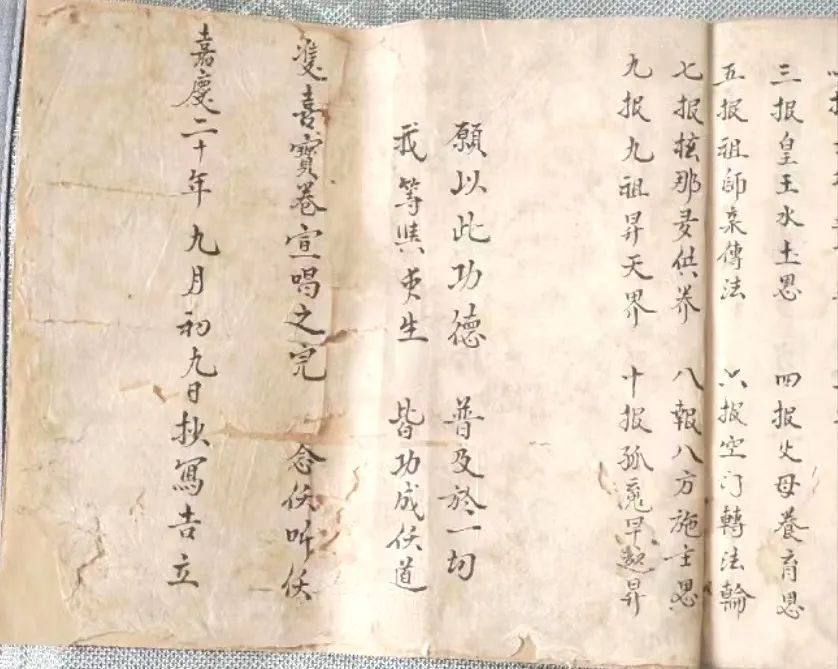 三报皇王水土恩 四报父母養育恩
五报祖師亲傳法 六报空门轉法輪
七报檀那多供养 八報八方施主恩
九报九祖昇天界 十报孤魂早超昇
願以此功德 普及於一切
我等與衆生 皆功成仸道
雙喜寳卷宣唱之完 念仸听仸
嘉慶二十年九月初九日抄寫吉立